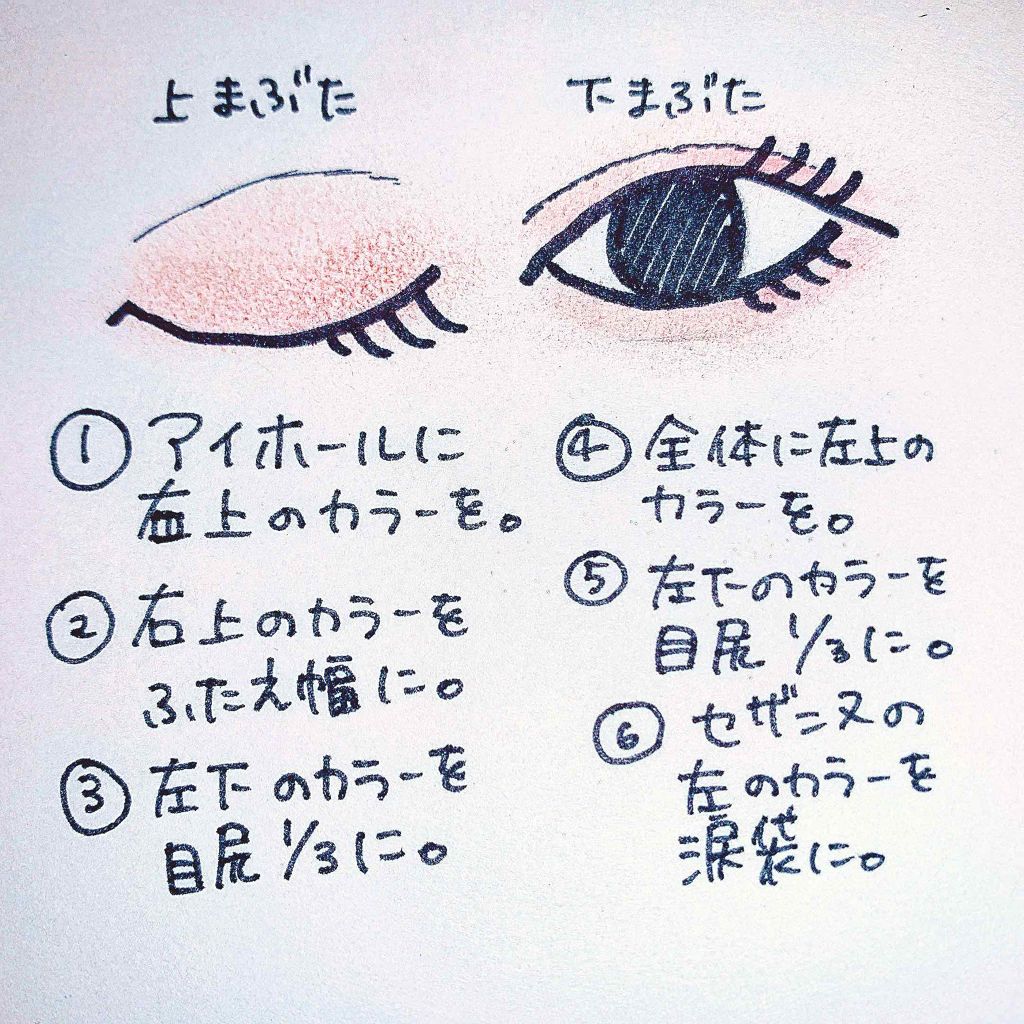 上まぶた
下まぶた
① アイホールに
上のカラーを。
② 右上のカラーを
ふたえ幅に。
③ 左下のカラーを
目尻1/3に。
④ 全体に左上の
カラーを。
⑤ 左下のカラーを
目尻1/3に。
⑥ セザンヌの
左のカラーを
涙袋に。